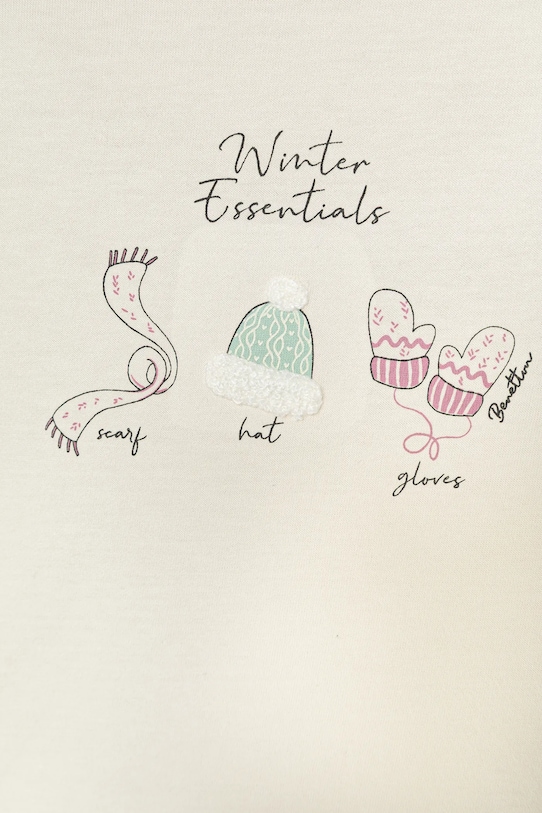 Winter
Essentials
scarf
hat
gloves
Benetton